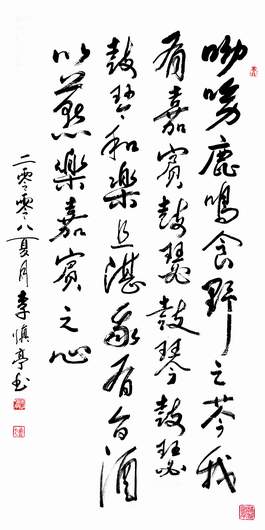 呦呦鹿鳴食野之芩我
有嘉賓鼓瑟鼓琴鼓瑟
鼓琴和樂且湛我有旨酒
以燕樂嘉賓之心
二零零八夏月李慎亭书